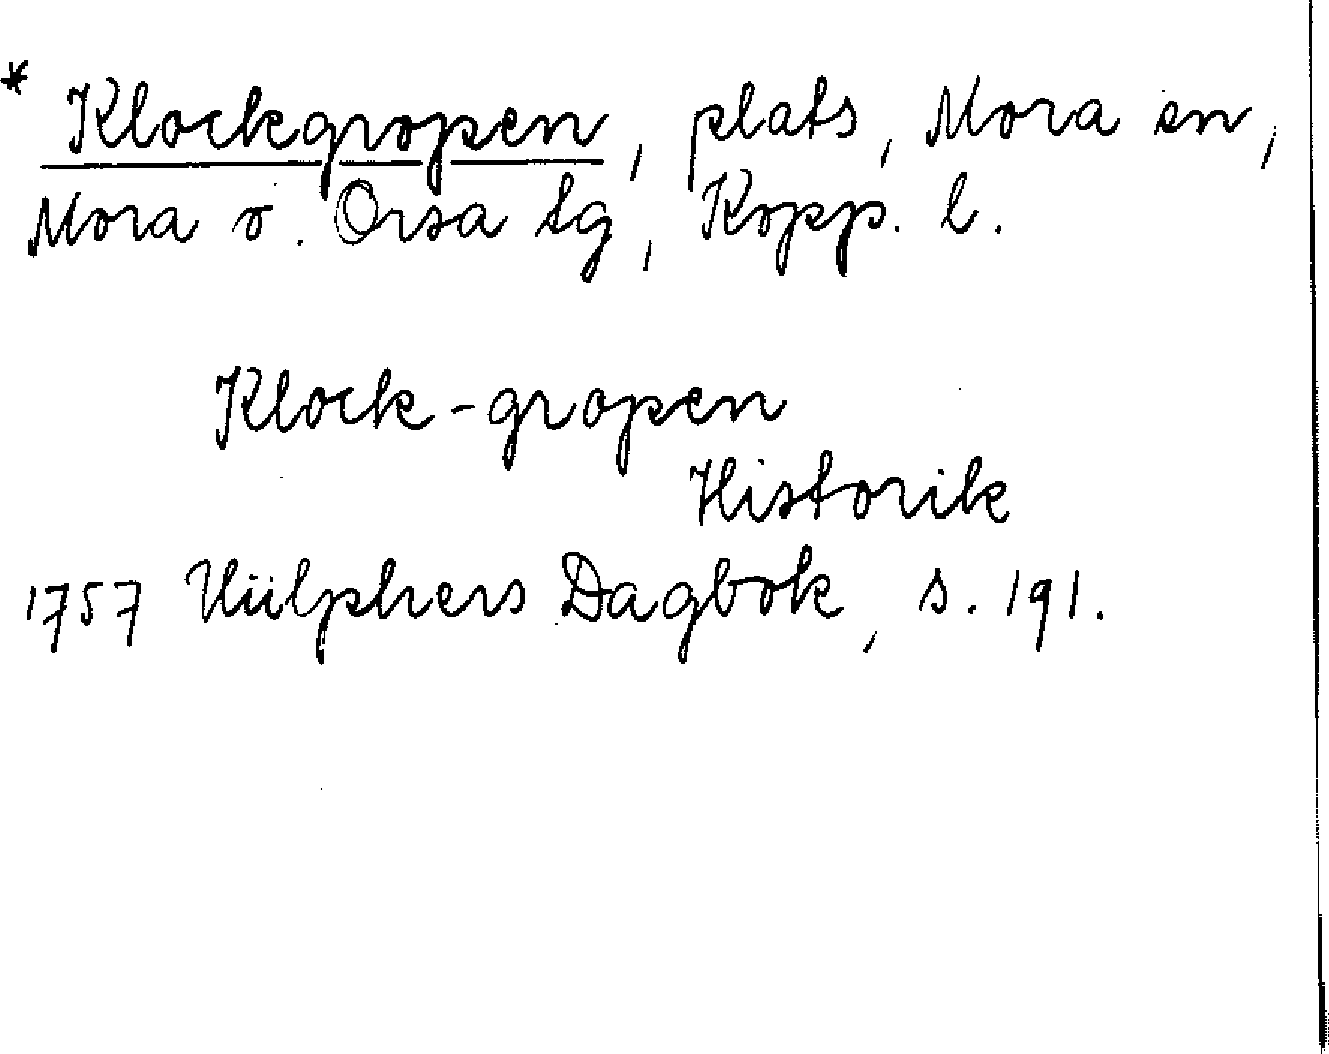 * Klockgropen, plats, Mora sn,
Mora o. Orsa tg, Kopp. l.
Klock-gropen
Historik
1757 Hülphers Dagbok, s. 191.